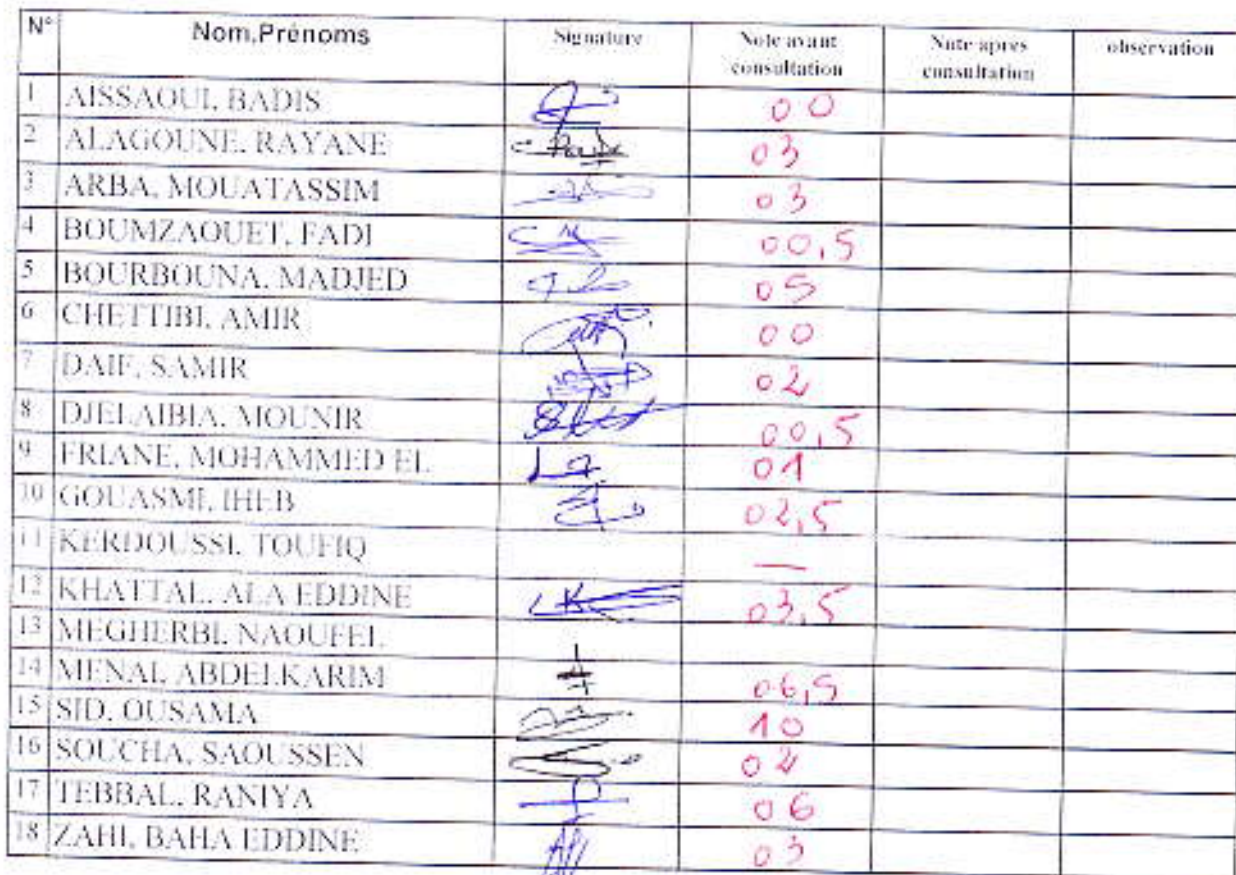 N° Nom,Prénoms Signature Note avant consultation Note apres consultation observation
1 AISSAOUI, BADIS 00
2 ALAGOUNE, RAYANE 03
3 ARBA, MOUATASSIM 03
4 BOUMZAOUET, FADI 00,5
5 BOURBOUNA, MADJED 05
6 CHETTIBI, AMIR 00
7 DAIF, SAMIR 02
8 DJELAIBIA, MOUNIR 00,5
9 FRIANE, MOHAMMED EL 01
10 GOUASMI, IHEB 02,5
11 KERDOUSSI, TOUFIQ —
12 KHATTAL, ALA EDDINE 03,5
13 MEGHERBI, NAOUFEL
14 MENAI, ABDELKARIM 06,5
15 SID, OUSAMA 10
16 SOUCHA, SAOUSSEN
17 TEBBAL, RANIYA 06
18 ZAHI, BAHA EDDINE 03